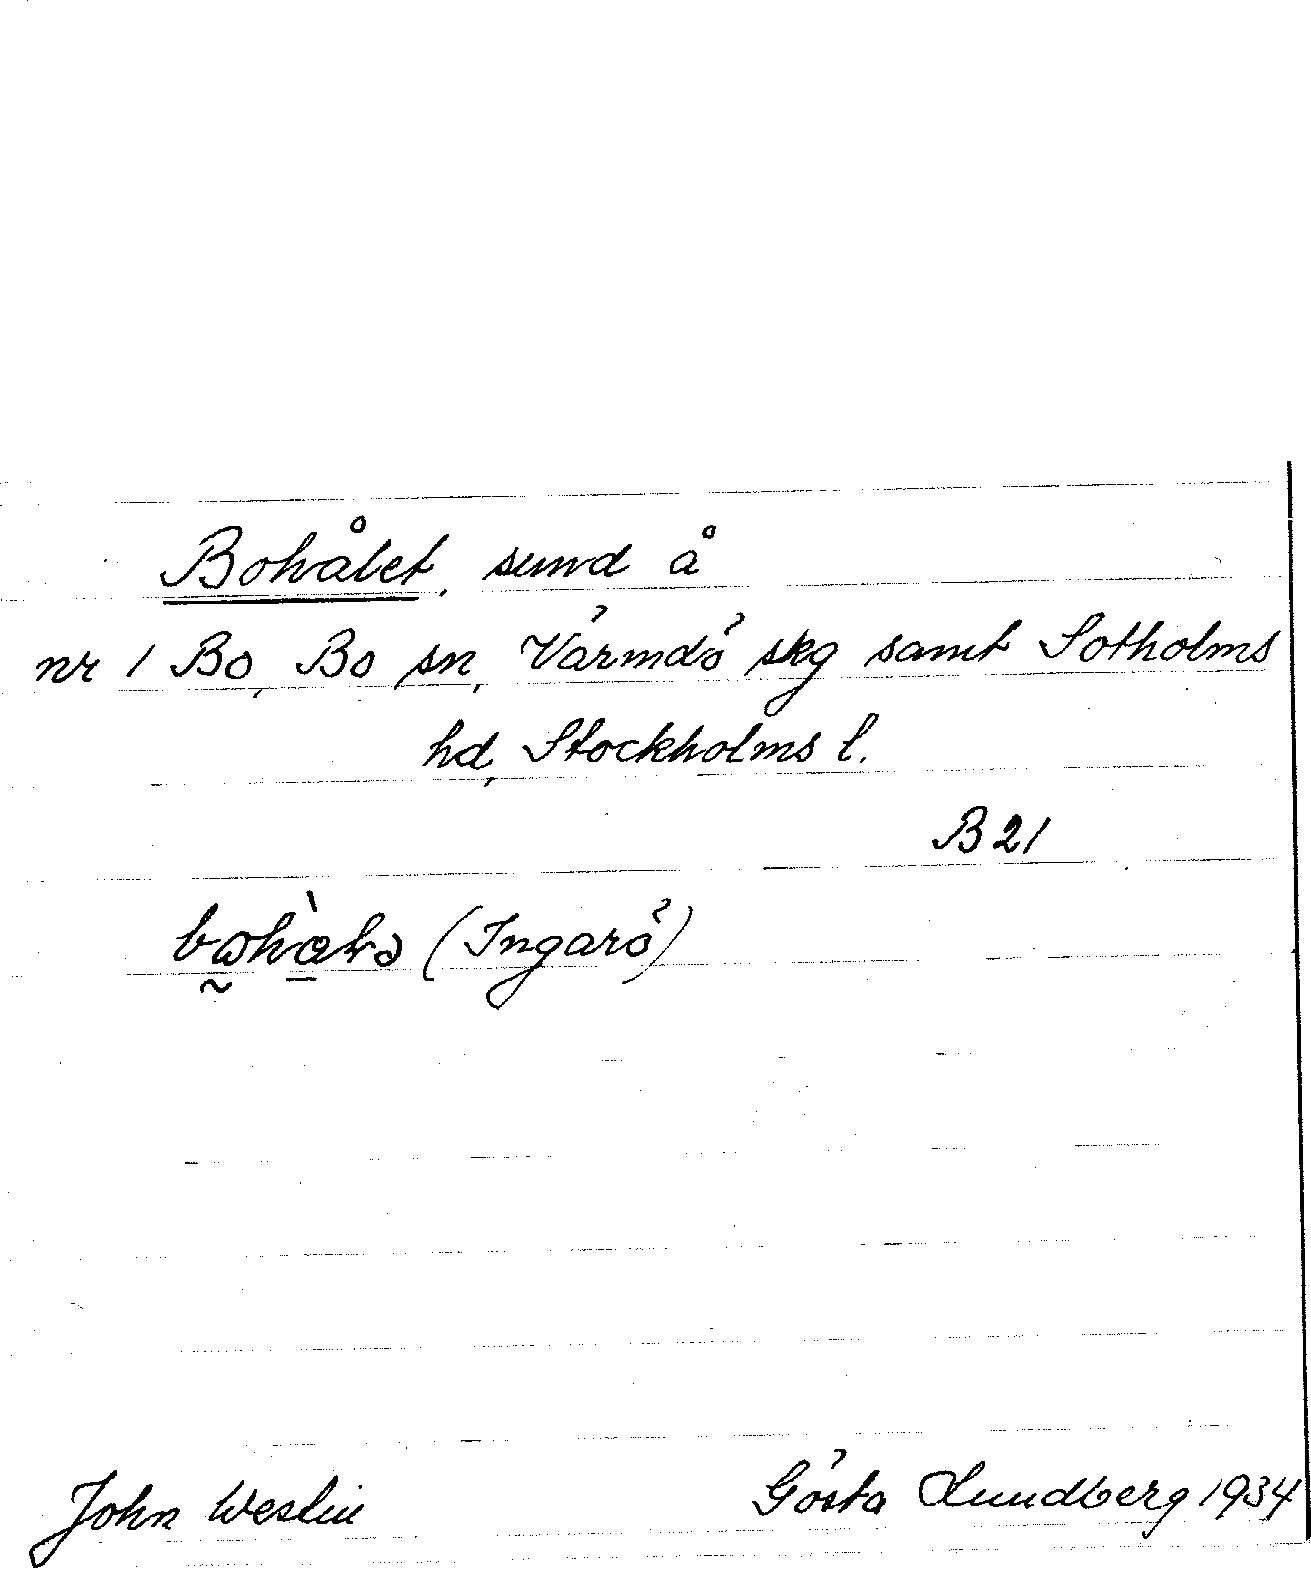 Bohålet, sund å
nr 1 Bo, Bo sn, Värmdö skg samt Sotholms
hd, Stockholms l.
B 21
(Ingarö)
John Westin Gösta Lundberg 1934